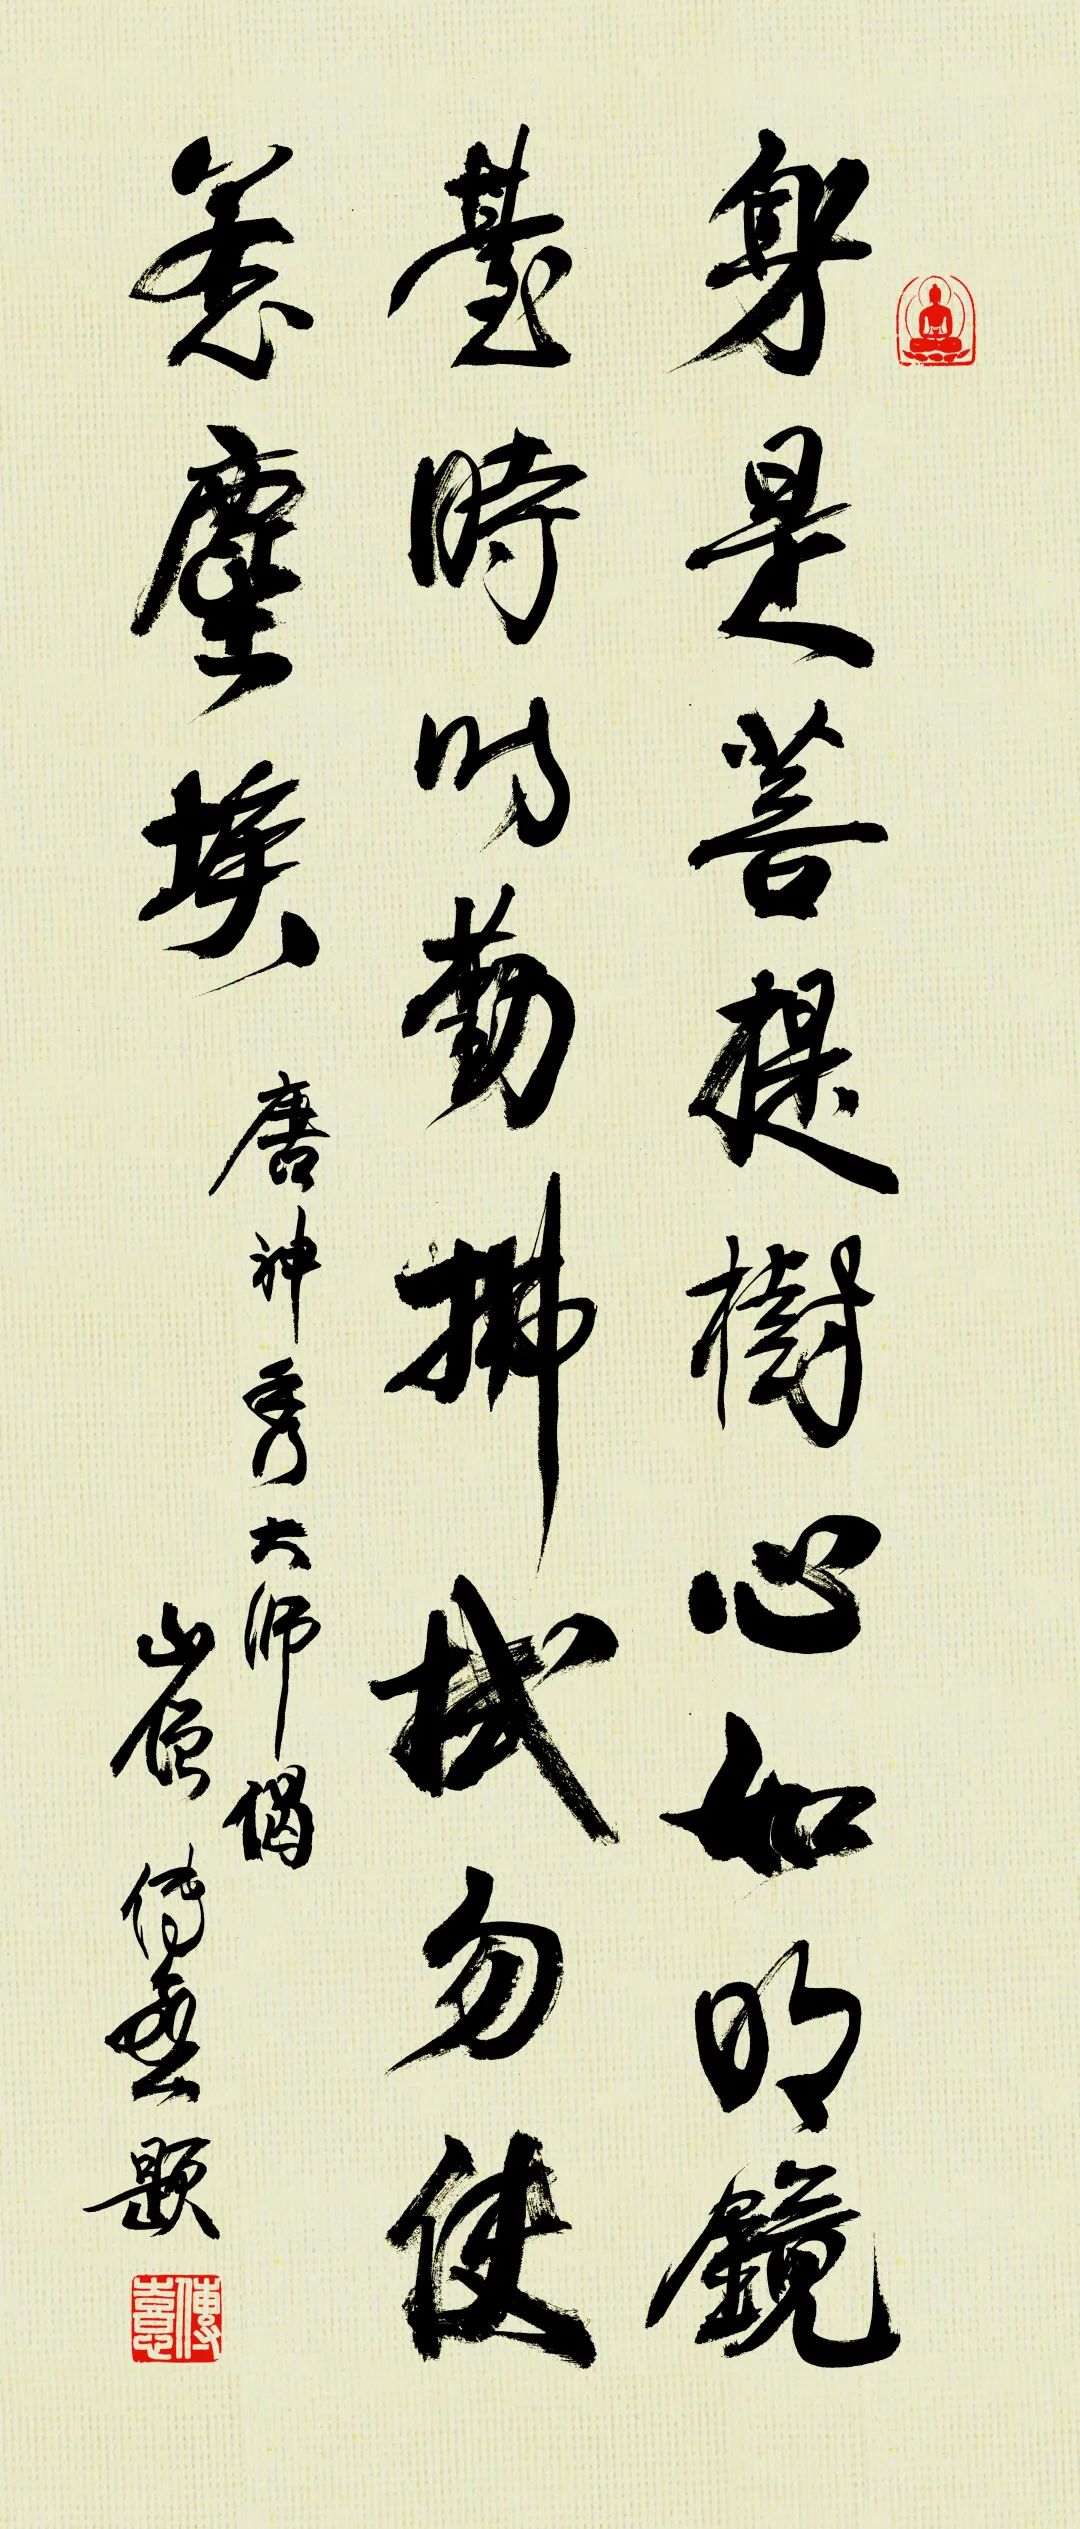 身是菩提樹心如明鏡
臺時時勤拂拭勿使
惹塵埃
唐神秀大师偈
山僧傳喜題
傳憙